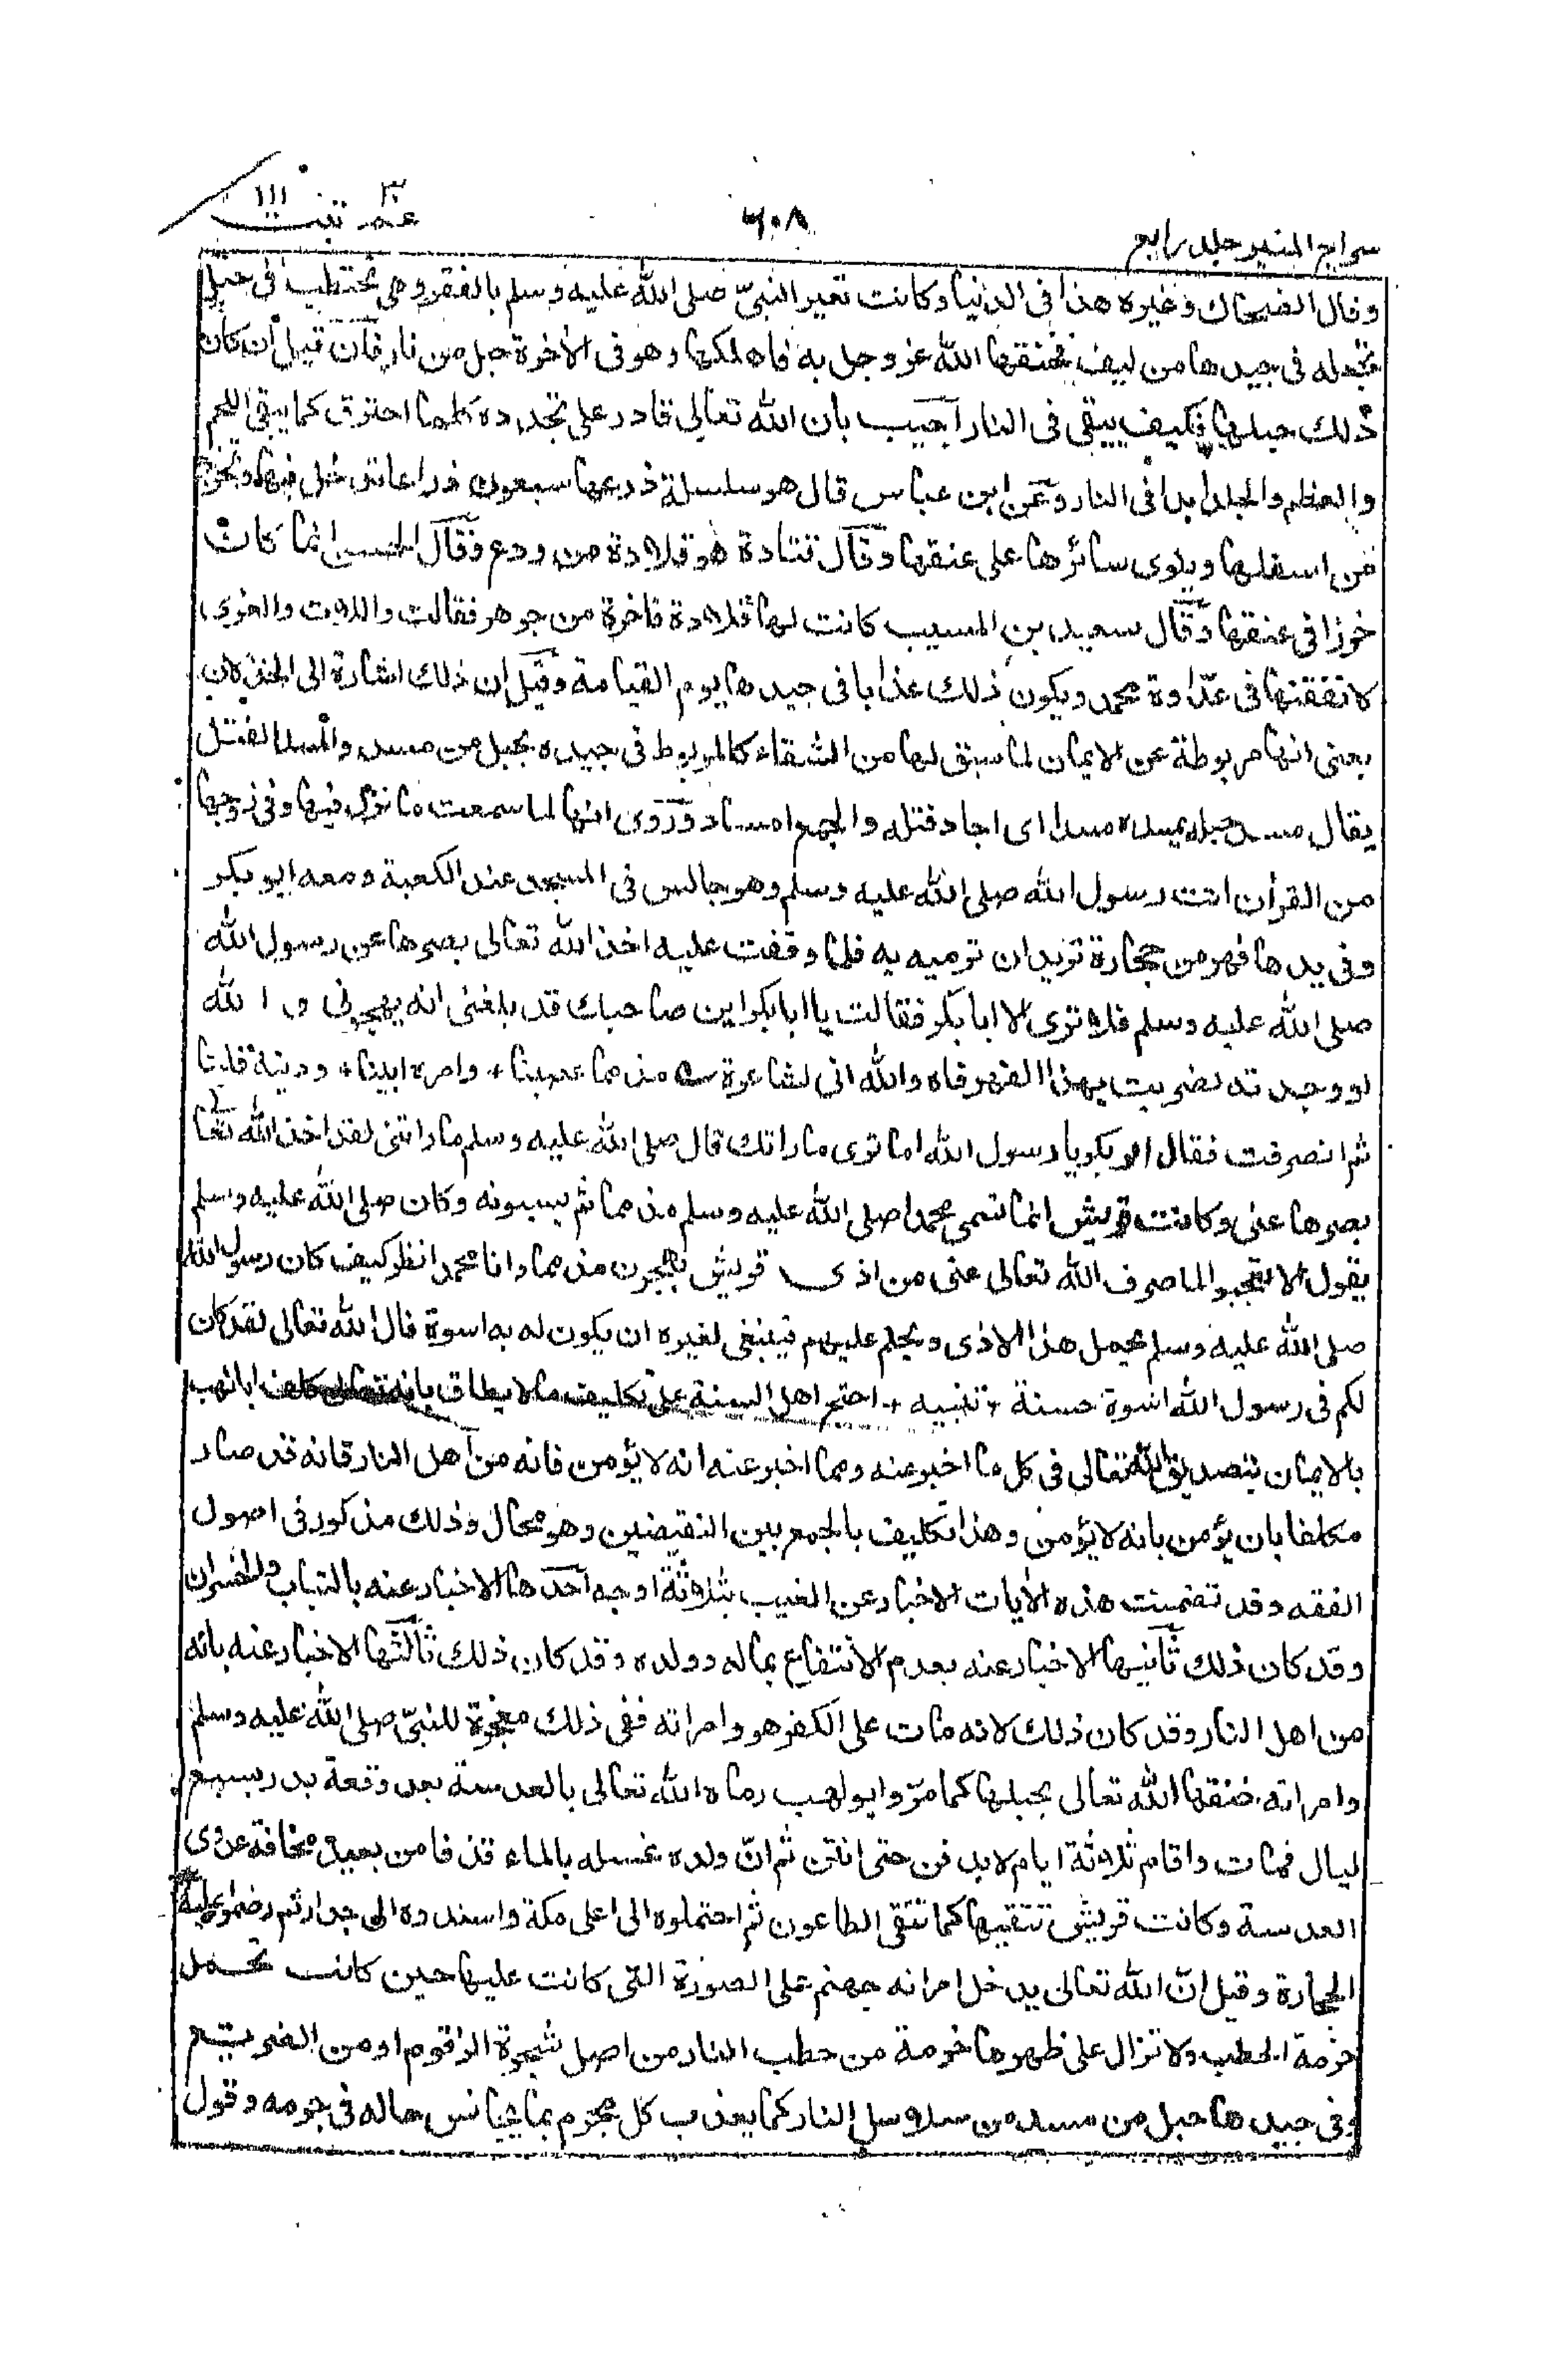 سراج المنير جلد رابع
٦٠٨
عم تبت ١١١
وقال الضحاك وغيره هذا فى الدنيا وكانت تعير النبىّ صلى الله عليه وسلم بالفقر وهى تحتطب فى حبل
تجعله فى جيدها من ليف فخنقها الله عز وجل به فاهلكها وهو فى الاخرة حبل من نار فان قيل ان كان
ذلك حبلها فكيف يبقى فى النار اجيب بان الله تعالى قادر على تجدده كلما احترق كما يبقى اللحم
والعظم والجلد ابدا فى النار وعن ابن عباس قال هو سلسلة ذرعها سبعون ذراعا تدخل فيها وتخرج
من اسفلها ويلوى سائرها على عنقها وقال قتادة هو قلادة من ودع وقال الحسن انما كان
خرزا فى عنقها وقال سعيد بن المسيب كانت لها قلادة فاخرة من جوهر فقالت واللات والعزى
لانفقنها فى عداوة محمد ويكون ذلك عذابا فى جيدها يوم القيامة وقيل ان ذلك اشارة الى الخذلان
يعنى انها مربوطة عن الايمان لما سبق لها من الشقاء كالمربوط فى جيده بحبل من مسد والمسد الفتل
يقال مسد حبله يمسده مسدا اى اجاد فتله والجمع امساد وروى انها لما سمعت ما نزل فيها وفى زوجها
من القرأن اتت رسول الله صلى الله عليه وسلم وهو جالس فى المسجد عند الكعبة ومعه ابو بكر
وفى يدها فهر من حجارة تريد ان ترميه به فلما وقفت عليه اخذ الله تعالى بصرها عن رسول الله
صلى الله عليه وسلم فلا ترى الا ابا بكر فقالت يا ابا بكر اين صاحبك قد بلغنى انه يهجونى والله
لو وجدته لضربت بهذا الفهر فاه والله انى لشاعرة مذمما عصينا + وامره ابينا + ودينه قلينا
ثم انصرفت فقال ابو بكر يا رسول الله اما ترى ما راتك قال صلى الله عليه وسلم ما راتنى لقد اخذ الله تعا
بصرها عنى وكانت قريش انما تسمى محمدا صلى الله عليه وسلم مذمما ثم يسبونه وكان صلى الله عليه وسلم
يقول الا تعجبوا لما صرف الله تعالى عنى من اذى قريش يهجون مذمما وانا محمد انظر كيف كان رسول الله
صلى الله عليه وسلم يحمل هذا الاذى ويحلم عليهم فينبغى لغيره ان يكون له به اسوة قال الله تعالى لقد كان
لكم فى رسول الله اسوة حسنة + تنبيه + احتج اهل السنة على تكليف ما لا يطاق بانه تعالى كلف ابا لهب
بالايمان بتصديق الله تعالى فى كل ما اخبر عنه ومما اخبر عنه انه لا يؤمن فانه من اهل النار فانه قد صار
مكلفا بان يؤمن بانه لا يؤمن وهذا تكليف بالجمع بين النقيضين وهو محال وذلك مذكور فى اصول
الفقه وقد تضمنت هذه الأيات الاخبار عن الغيب بثلاثة اوجه احدها الاخبار عنه بالتباب والخسران
وقد كان ذلك ثانيها الاخبار عنه بعدم الانتفاع بماله وولده وقد كان ذلك ثالثها الاخبار عنه بانه
من اهل النار وقد كان ذلك لانه مات على الكفر هو وامراته ففى ذلك معجزة للنبىّ صلى الله عليه وسلم
وامراته خنقها الله تعالى بحبلها كما مرّ وابو لهب رماه الله تعالى بالعدسة بعد وقعة بدر بسبع
ليال فمات واقام ثلاثة ايام لا يدفن حتى انتن ثم انّ ولده غسله بالماء قذفا من بعيد مخافة عدوى
العدسة وكانت قريش تتقيها كما تتقى الطاعون ثم احتملوه الى اعلى مكة واسندوه الى جدار ثم رضموا عليه
الحجارة وقيل انّ الله تعالى يدخل امراته جهنم على الصورة التى كانت عليها حين كانت تحمل
حزمة الحطب ولا تزال على ظهرها حزمة من حطب النار من اصل شجرة الزقوم او من الضريع
وفى جيدها حبل من مسد من سلاسل النار كما يعذب كل مجرم بما يجانس حاله فى جرمه وقول